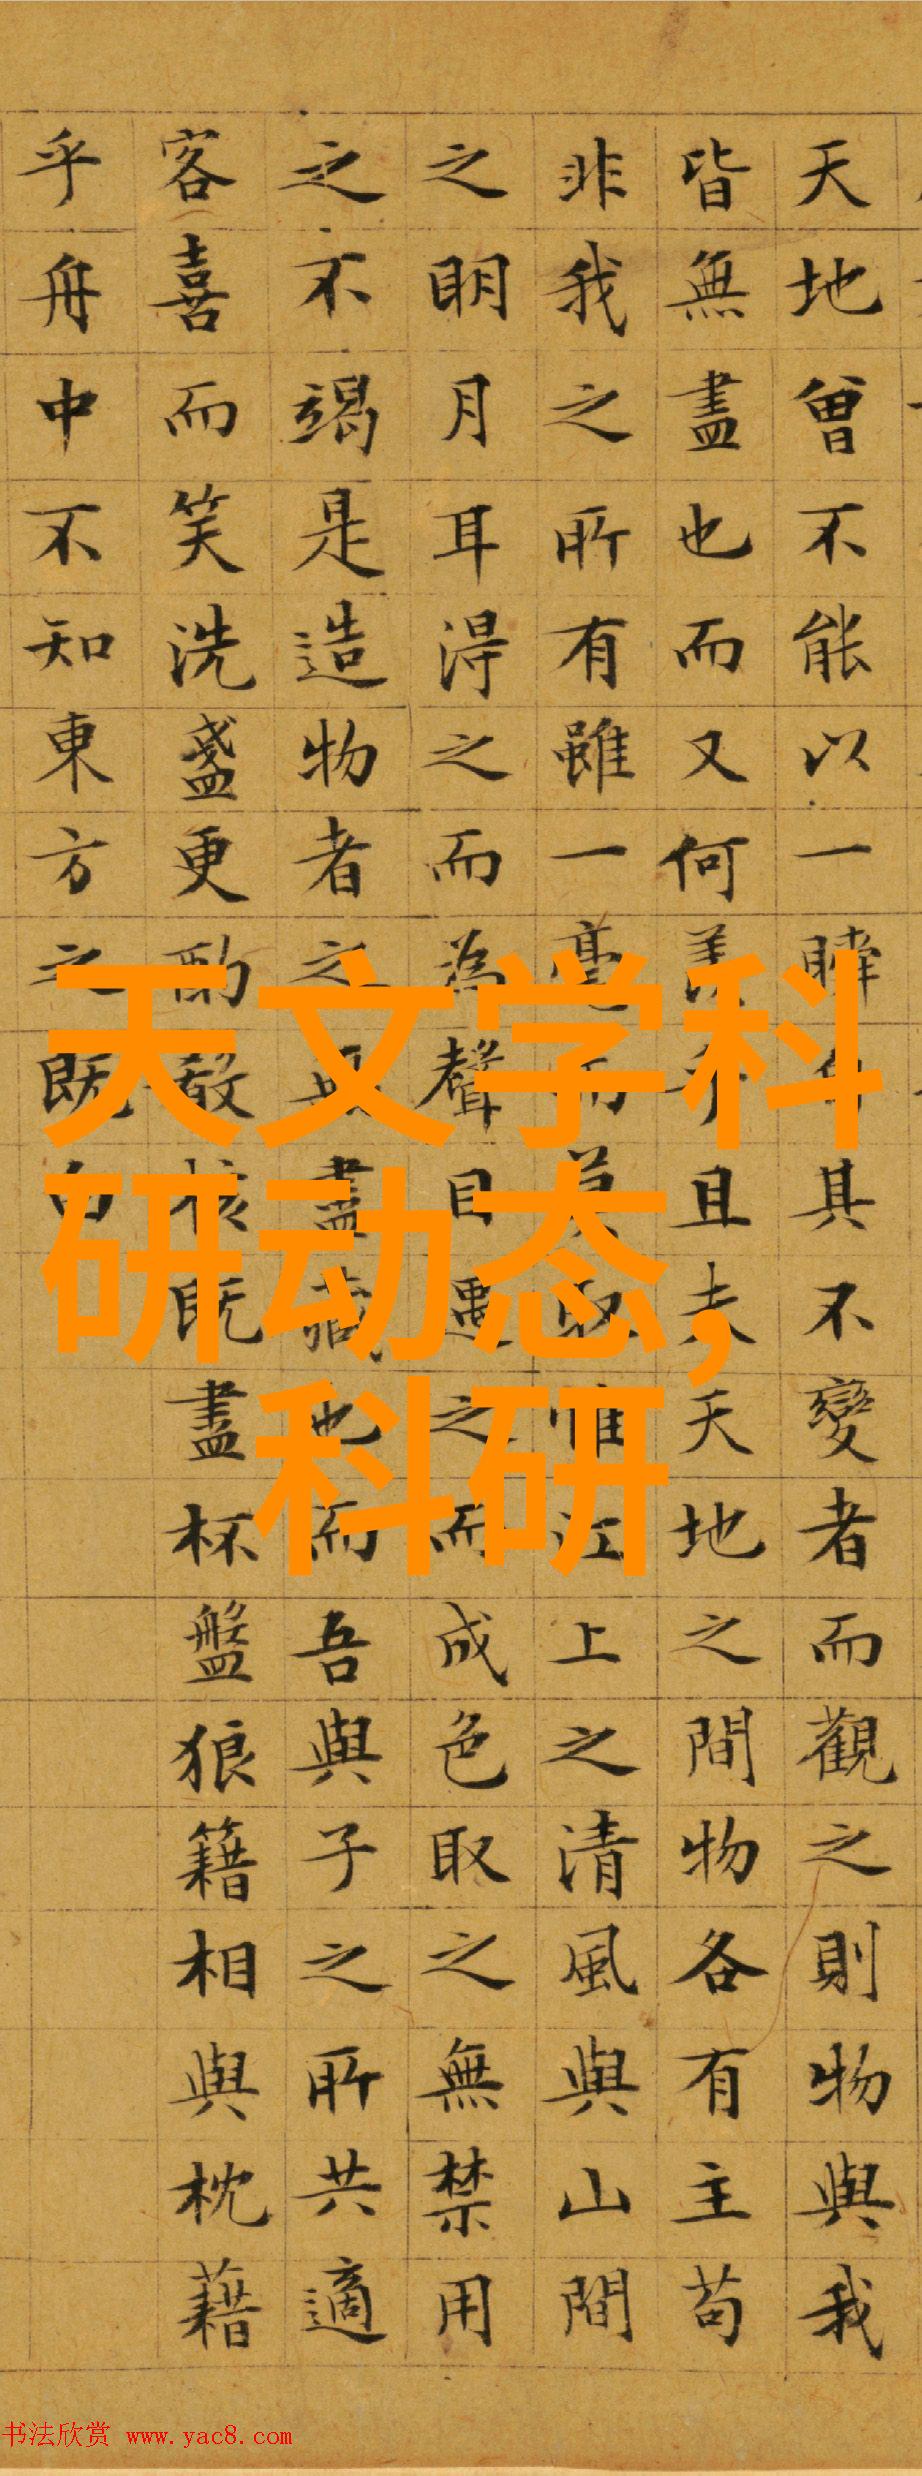 天地曾不能以一瞬自其不變者而觀之則物與我
皆無盡也而又何羨乎且夫天地之間物各有主苟
非我之所有雖一毫而莫取惟江上之清風與山間
之明月耳得之而為聲目遇之而成色取之無禁用
之不竭是造物者之無盡藏也而吾與子之所共適
客喜而笑洗盞更酌殽核既盡杯盤狼籍相與枕藉
乎舟中不知東方之既白
天文学科
研动态,
科研
书法欣赏 www.yac8.com